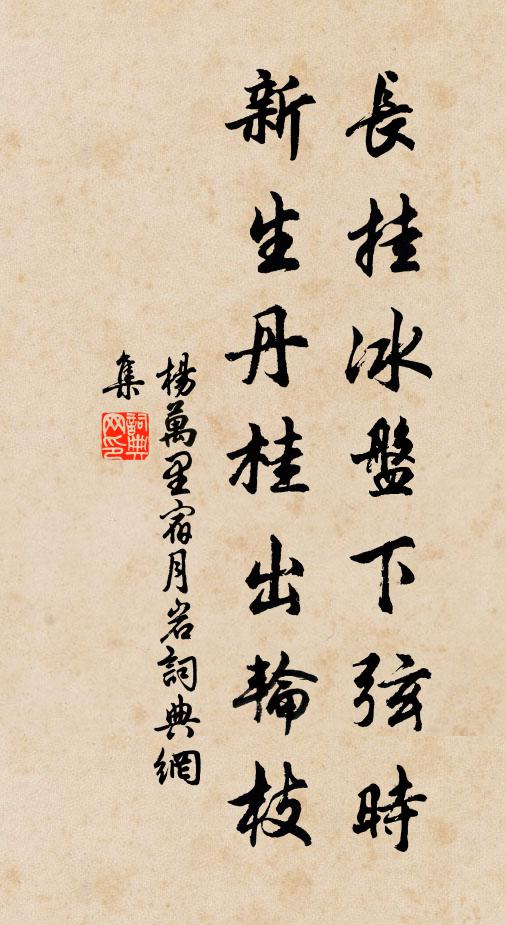 長挂冰盤下弦時
新生丹桂出輪枝
楊萬里宿月岩詞典網
集
詞典網印